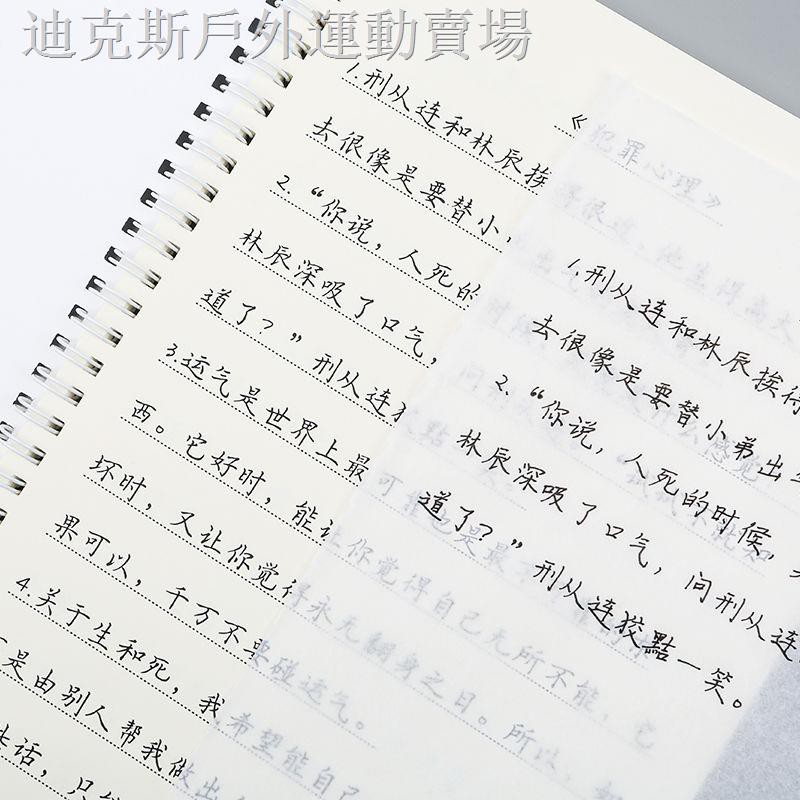 迪克斯戶外運動賣場
《犯罪心理》
1.刑从连和林辰挨得很近，他生得高大
去很像是要替小
2.“你说，人死的时候
林辰深吸了口气，问
道了？”刑从连狡點
3.运气是世界上最
西。它好时，能让你觉得自己无所不能，它
坏时，又让你觉得永无翻身之日。所以，
果可以，千万不要碰运气。
4.关于生和死，我希望能自己
是由别人帮我做出
话，只
1.刑从连和林辰挨得
去很像是要替小弟出
2.“你说，人死的时候，
林辰深吸了口气，问刑从连
道了？”刑从连狡點一笑。